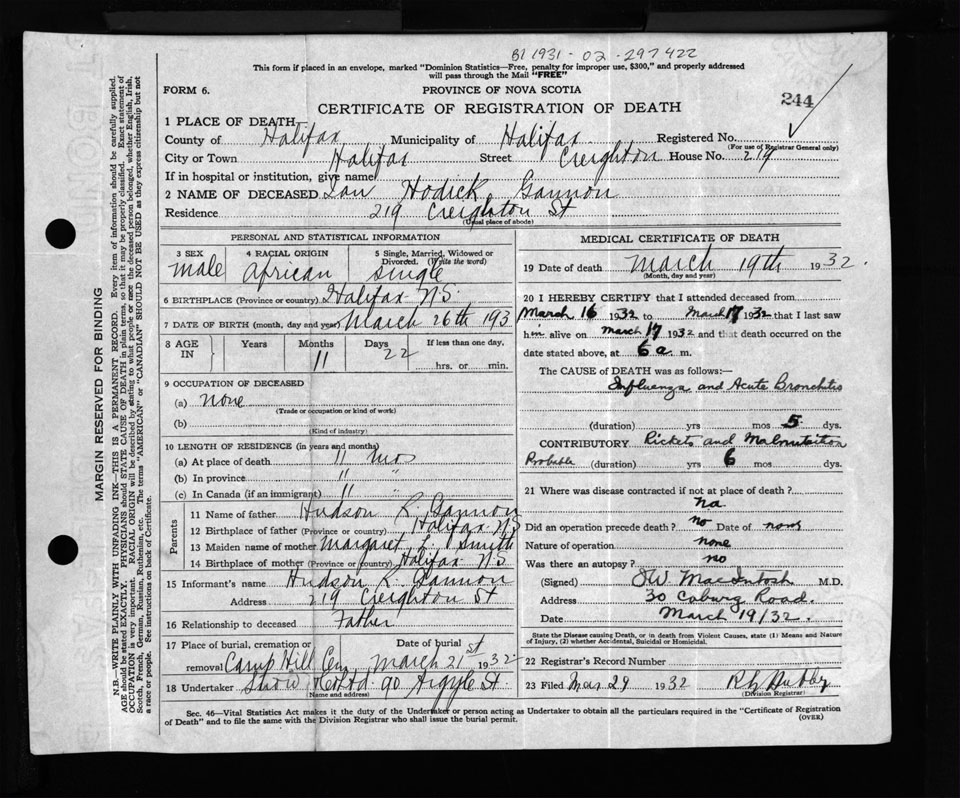 B1 1931 - 02 - 297422
This form if placed in an envelope, marked "Dominion Statistics—Free, penalty for improper use, $300," and properly addressed
will pass through the Mail "FREE"
FORM 6.
PROVINCE OF NOVA SCOTIA
CERTIFICATE OF REGISTRATION OF DEATH
244
1 PLACE OF DEATH
County of Halifax Municipality of Halifax Registered No.
(For use of Registrar General only)
City or Town Halifax Street Creighton House No. 219
If in hospital or institution, give name
2 NAME OF DECEASED Ian Hodick Gannon
Residence 219 Creighton St
(Usual place of abode)
PERSONAL AND STATISTICAL INFORMATION
3 SEX male
4 RACIAL ORIGIN African
5 Single, Married, Widowed or Divorced. (Write the word) single
6 BIRTHPLACE (Province or country) Halifax NS
7 DATE OF BIRTH (month, day and year) March 26th 193
8 AGE IN Years Months 11 Days 22 If less than one day, hrs. or min.
9 OCCUPATION OF DECEASED
(a) none
(Trade or occupation or kind of work)
(b)
(Kind of industry)
10 LENGTH OF RESIDENCE (in years and months)
(a) At place of death 11 mos
(b) In province 11 "
(c) In Canada (if an immigrant) 11 "
Parents
11 Name of father Hudson R. Gannon
12 Birthplace of father (Province or country) Halifax NS
13 Maiden name of mother Margaret L. Smith
14 Birthplace of mother (Province or country) Halifax NS
15 Informant's name Hudson R. Gannon
Address 219 Creighton St
16 Relationship to deceased Father
17 Place of burial, cremation or removal Camp Hill Cem Date of burial March 21st 1932
18 Undertaker Snow Co Ltd 90 Argyle St
(Name and address)
MEDICAL CERTIFICATE OF DEATH
19 Date of death March 19th 1932.
(Month, day and year)
20 I HEREBY CERTIFY that I attended deceased from
March 16 1932 to March 17 1932 that I last saw
him alive on March 17 1932 and that death occurred on the
date stated above, at 6 a m.
The CAUSE of DEATH was as follows:
Influenza and Acute Bronchitis
(duration) yrs mos 5 dys.
CONTRIBUTORY Rickets and Malnutrition
Probable (duration) yrs 6 mos dys.
21 Where was disease contracted if not at place of death?
na
Did an operation precede death? no Date of none
Nature of operation none
Was there an autopsy? no
(Signed) JW MacIntosh M.D.
Address 30 Coburg Road.
Date March 19/32.
State the Disease causing Death, or in death from Violent Causes, state (1) Means and Nature
of Injury, (2) whether Accidental, Suicidal or Homicidal.
22 Registrar's Record Number
23 Filed Mar 29 1932
(Division Registrar)
Sec. 46—Vital Statistics Act makes it the duty of the Undertaker or person acting as Undertaker to obtain all the particulars required in the "Certificate of Registration
of Death" and to file the same with the Division Registrar who shall issue the burial permit.
(OVER)
MARGIN RESERVED FOR BINDING
N.B.—WRITE PLAINLY WITH UNFADING INK—THIS IS A PERMANENT RECORD. Every item of information should be carefully supplied.
AGE should be stated EXACTLY. PHYSICIANS should STATE CAUSE OF DEATH in plain terms, so that it may be properly classified. Exact statement of
OCCUPATION is very important. RACIAL ORIGIN will be described by stating to what people or race the deceased person belonged, whether English, Irish,
Scotch, French, German, Russian, Ruthenian, etc. The terms "AMERICAN" or "CANADIAN" SHOULD NOT BE USED as they express citizenship but not
a race or people. See instructions on back of Certificate.